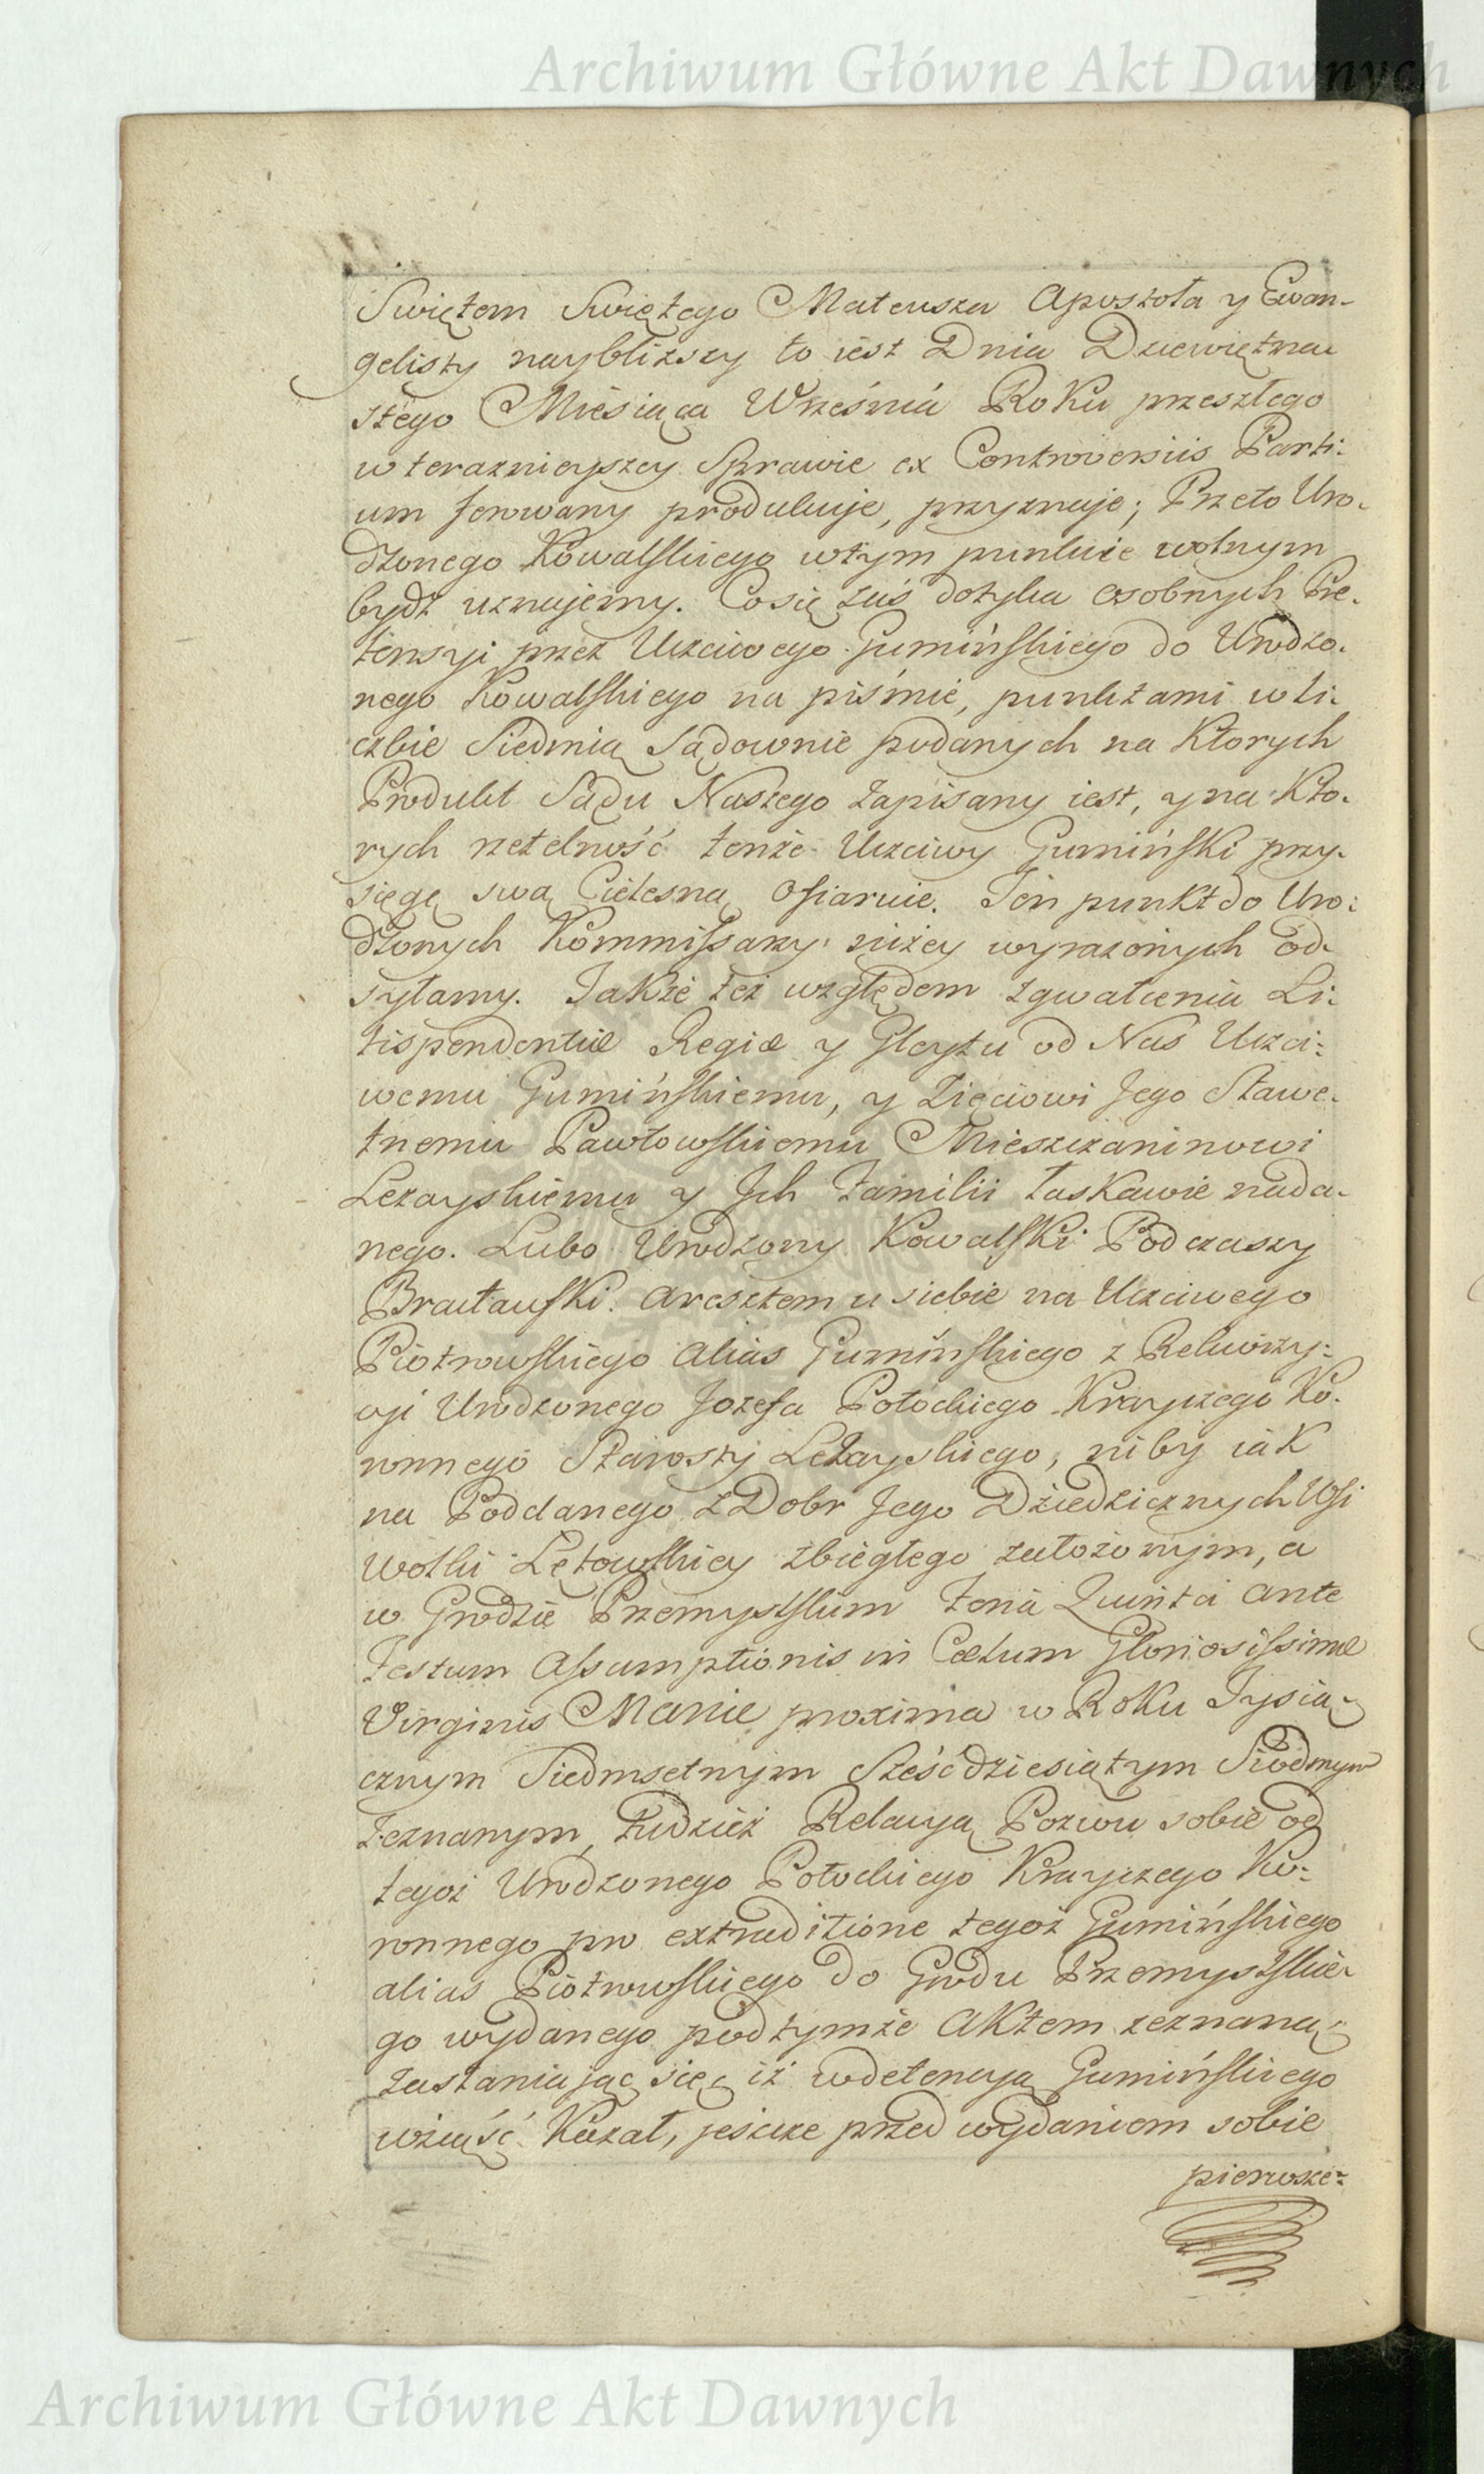 Archiwum Główne Akt Dawnych
Swiętem Swiętego Mateusza Apostoła y Ewan-
gelisty naybliższy to iest Dnia Dziewiętna
stego Miesiąca Wrześniá Roku przeszłego
w teraznieyszey Sprawie ex Controversiis Parti-
um ferowany produkuje, przyznaje; Przeto Uro-
dzonego Kowalskiego w tym punkcie wolnym
bydź uznajemy. Co się zaś dotyka osobnych Pre-
tensyi przez Uczciwego Gumińskiego do Urodzo-
nego Kowalskiego na piśmie, punktami w li-
czbie Siedmią Sądownie podanych na ktorych
Produkt Sądu Naszego zapisany iest, y na kto-
rych rzetelność tenże Uczciwy Gumiński przy-
sięgę swą Cielesną ofiaruie. Ten punkt do Uro-
dzonych Kommissarzy niżey wyrażonych od-
syłamy. Jakże też względem zgwałcenia Li-
tispendentiæ Regiæ y Gleytu od Nas Uczci-
wemu Gumińskiemu, y Zięciowi Jego Sławe-
tnemu Pawłowskiemu Mieszczaninowi
Leżayskiemu y Jch Familii łaskawie nada-
nego. Lubo Urodzony Kowalski Podczaszy
Bracławski. Aresztem u siebie na Uczciwego
Piotrowskiego alias Gumińskiego z Rekwizy-
cyi Urodzonego Jozefa Potockiego Krayczego Ko-
ronnego Starosty Leżayskiego, niby iak
na Poddanego z Dobr Jego Dziedzicznych Wsi
Wolki Łętowskiey zbiegłego założonym, a
w Grodzie Przemyskim Feria Quinta ante
Festum Assumptionis in Cœlum Gloriosissimæ
Virginis Mariæ proxima w Roku Tysią-
cznym Siedmsetnym Sześćdziesiątym Siodmym
zeznanym, tudzież Relacyą Pozwu sobie od
tegoż Urodzonego Potockiego Krayczego Ko-
ronnego pro extraditione tegoż Gumińskiego
alias Piotrowskiego do Grodu Przemyskie-
go wydanego pod tymże Aktem zeznaną
zasłaniając się, iż w detencyą Gumińskiego
wziąść kazał, jeszcze przed wydaniem sobie
pierwsze-
Archiwum Główne Akt Dawnych